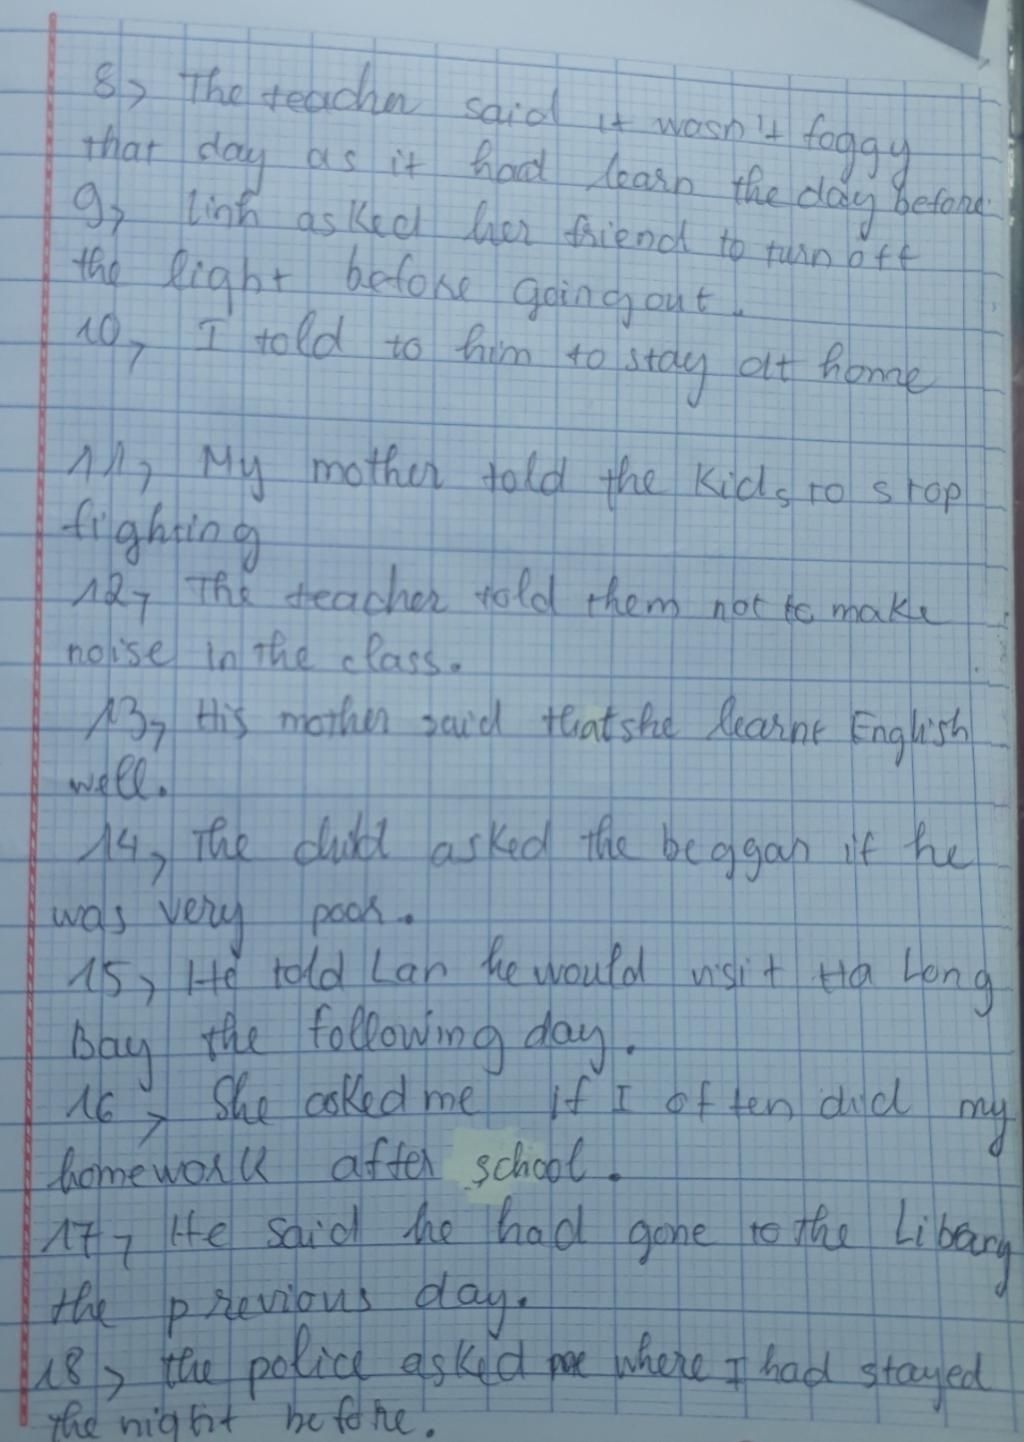 8, The teacher said it wasn't foggy
that day as it had learn the day before
9, Linh asked her friend to turn off
the light before going out.
10, I told to him to stay at home
11, My mother told the kids to stop
fighting
12, The teacher told them not to make
noise in the class.
13, His mother said that she learnt English
well.
14, The child asked the beggar if he
was very poor.
15, He told Lan he would visit Ha Long
Bay the following day.
16, She asked me if I often did my
homework after school.
17, He said he had gone to the Libary
the previous day.
18, the police asked me where I had stayed
the night before.